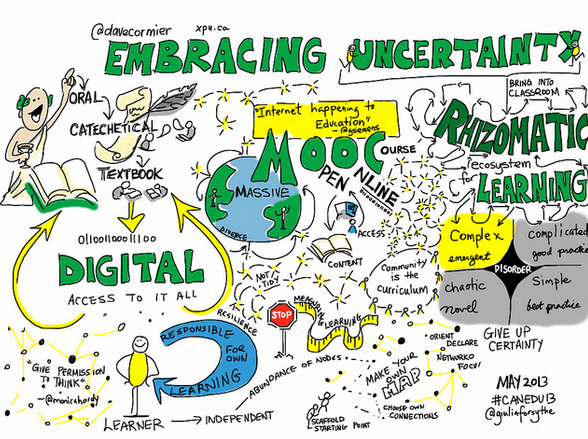 @davecormier xpu.ca
EMBRACING UNCERTAINTY
BRING INTO
CLASSROOM
ORAL
CATECHETICAL
TEXTBOOK
"Internet happening to
Education"
- @gsiemens
MOOC
MASSIVE
OPEN
ONLINE
COURSE
DIVERSE
ACCESS
CONTENT
community
is the
curriculum
NOT
TIDY
RHIZOMATIC
ecosystem
for
LEARNING
Complex
emergent
complicated
good practice
DISORDER
chaotic
novel
Simple
best practice
GIVE UP
CERTAINTY
DIGITAL
ACCESS TO IT ALL
"GIVE PERMISSION
TO THINK"
- @monicahardy
LEARNER
INDEPENDENT
RESPONSIBLE
FOR
OWN
LEARNING
RESILIENCE
STOP
MEASURING
LEARNING
ABUNDANCE OF NODES
MAKE YOUR
OWN
MAP
CHOOSE OWN
CONNECTIONS
SCAFFOLD
STARTING POINT
ORIENT
DECLARE
NETWORK
FOCUS
MAY 2013
#CANEDU13
@giuliaforsythe